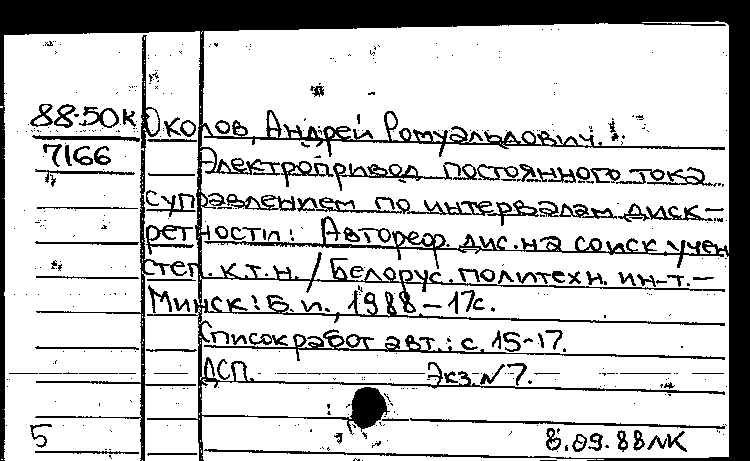 88-50к Околов, Андрей Ромуальдович.
7166 Электропривод постоянного тока
с управлением по интервалам диск-
ретности: Автореф. дис. на соиск. учен
степ. к.т.н. / Белорус. политехн. ин-т.-
Минск: Б.и., 1988.-17с.
Список работ авт.: с. 15-17.
ДСП. Экз. №7.
5 8.09.88 ЛК